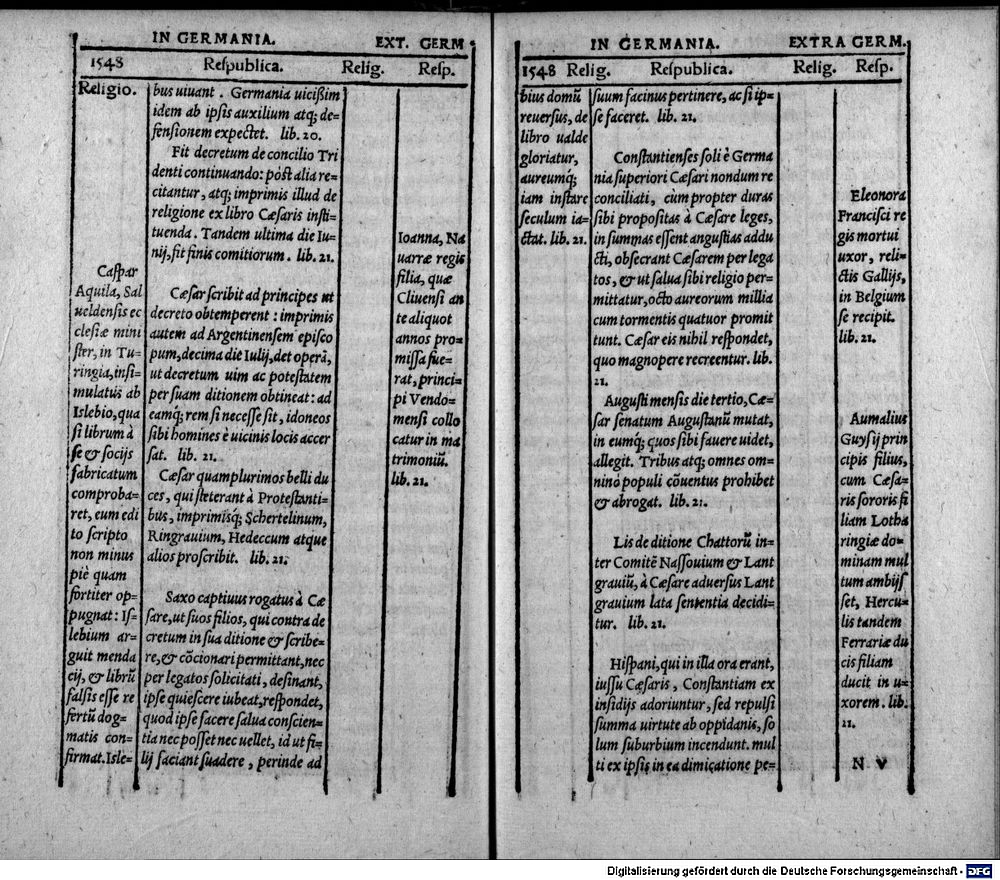 IN GERMANIA.
EXT. GERM
1548
Respublica.
Relig.
Resp.
Religio.
Caspar
Aquila, Sal
ueldensis ec
clesiæ mini
ster, in Tu-
ringia, insi-
mulatus ab
Islebio, qua
si librum à
se & socijs
fabricatum
comproba-
ret, eum edi
to scripto
non minus
piè quam
fortiter op-
pugnat: Is-
lebium ar-
guit menda
cij, & librũ
falsis esse re
fertũ dog-
matis con-
firmat. Isle-
bus uiuant. Germania uicißim
idem ab ipsis auxilium atq; de-
fensionem expectet. lib. 20.
Fit decretum de concilio Tri
denti continuando: pòst alia re-
citantur, atq; imprimis illud de
religione ex libro Cæsaris insti-
tuenda. Tandem ultima die Iu-
nij, fit finis comitiorum. lib. 21.
Cæsar scribit ad principes ut
decreto obtemperent: imprimis
autem ad Argentinensem episco
pum, decima die Iulij, det operã,
ut decretum uim ac potestatem
per suam ditionem obtineat: ad
eamq́; rem si necesse sit, idoneos
sibi homines è uicinis locis accer
sat. lib. 21.
Cæsar quamplurimos belli du
ces, qui steterant à Protestanti-
bus, imprimisq́; Schertelinum,
Ringrauium, Hedeccum atque
alios proscribit. lib. 21.
Saxo captiuus rogatus à Cæ
sare, ut suos filios, qui contra de
cretum in sua ditione & scribe-
re, & cõcionari permittant, nec
per legatos solicitati, desinant,
ipse quiescere iubeat, respondet,
quod ipse facere salua conscien-
tia nec posset nec uellet, id ut fi-
lij faciant suadere, perinde ad
Ioanna, Na
uarræ regis
filia, quæ
Cliuensi an
te aliquot
annos pro-
missa fue-
rat, princi-
pi Vendo-
mensi collo
catur in ma
trimoniũ.
lib. 21.
IN GERMANIA.
EXTRA GERM.
1548
Relig.
Respublica.
Relig.
Resp.
bius domũ
reuersus, de
libro ualde
gloriatur,
aureumq́;
iam instare
seculum ia-
ctat. lib. 21.
suum facinus pertinere, ac si ip-
se faceret. lib. 21.
Constantienses soli è Germa
nia superiori Cæsari nondum re
conciliati, cùm propter duras
sibi propositas à Cæsare leges,
in summas essent angustias addu
cti, obsecrant Cæsarem per lega
tos, & ut salua sibi religio per-
mittatur, octo aureorum millia
cum tormentis quatuor promit
tunt. Cæsar eis nihil respondet,
quo magnopere recreentur. lib.
21.
Augusti mensis die tertio, Cæ-
sar senatum Augustanũ mutat,
in eumq́; quos sibi fauere uidet,
allegit. Tribus atq; omnes om-
nino populi cõuentus prohibet
& abrogat. lib. 21.
Lis de ditione Chattorũ in-
ter Comitẽ Nassouium & Lant
grauiũ, à Cæsare aduersus Lant
grauium lata sententia decidi-
tur. lib. 21.
Hispani, qui in illa ora erant,
iussu Cæsaris, Constantiam ex
insidijs adoriuntur, sed repulsi
summa uirtute ab oppidanis, so
lum suburbium incendunt. mul
ti ex ipsis in ea dimicatione pe-
Eleonora
Francisci re
gis mortui
uxor, reli-
ctis Gallijs,
in Belgium
se recipit.
lib. 21.
Aumalius
Guysij prin
cipis filius,
cum Cæsa-
ris sororis fi
liam Lotha
ringiæ do-
minam mul
tum ambijs
set, Hercu-
lis tandem
Ferrariæ du
cis filiam
ducit in u-
xorem. lib.
21.
N v
Digitalisierung gefördert durch die Deutsche Forschungsgemeinschaft - DFG